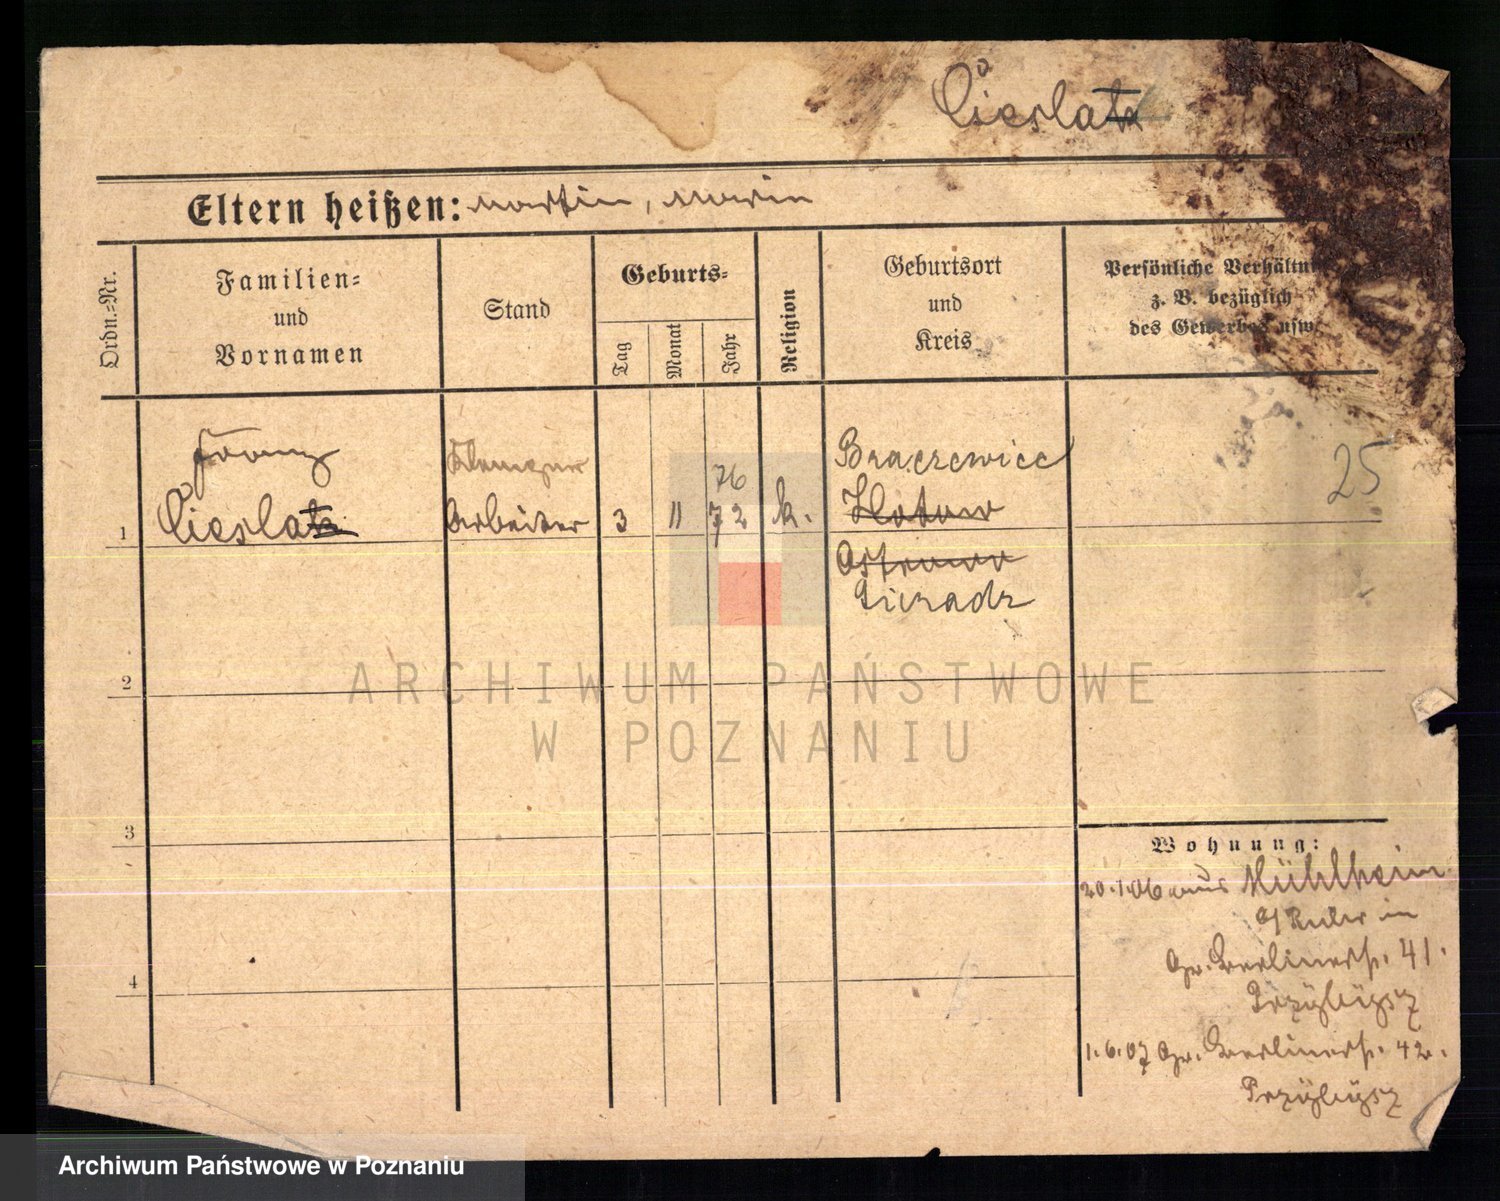 Cieslak
Eltern heißen: Martin, Marie
Ordn.-Nr.
Familien-
und
Vornamen
Stand
Geburts-
Tag
Monat
Jahr
Religion
Geburtsort
und
Kreis
Persönliche Verhältni
z. B. bezüglich
des Gewerbes usw.
Franz
Braczewice
76
25
1
Cieslak
Arbeiter
3
11
72
k.
Ostrowo
Sieradz
2
3
4
Wohnung:
20.1.06 aus Mühlheim
a/Ruhr in
Gr. Berlinerstr. 41.
Przybysz
1.6.07 Gr. Berlinerstr. 42.
Przybysz
ARCHIWUM PAŃSTWOWE
W POZNANIU
Archiwum Państwowe w Poznaniu